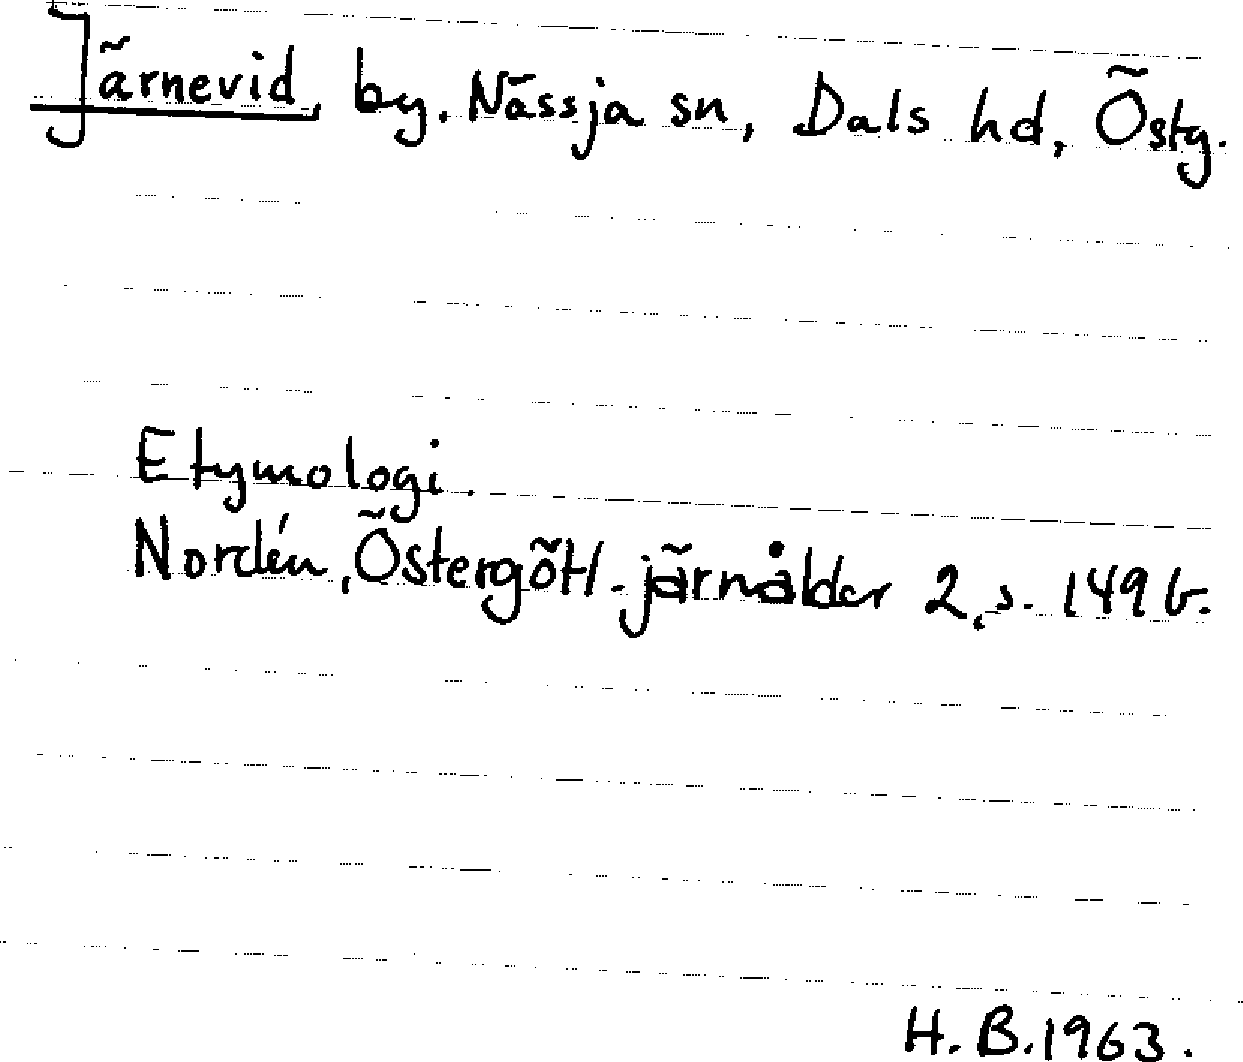 Järnevid, by. Nässja sn, Dals hd, Östg.
Etymologi.
Nordén, Östergötl. järnålder 2, s. 149 b.
H. B. 1963.